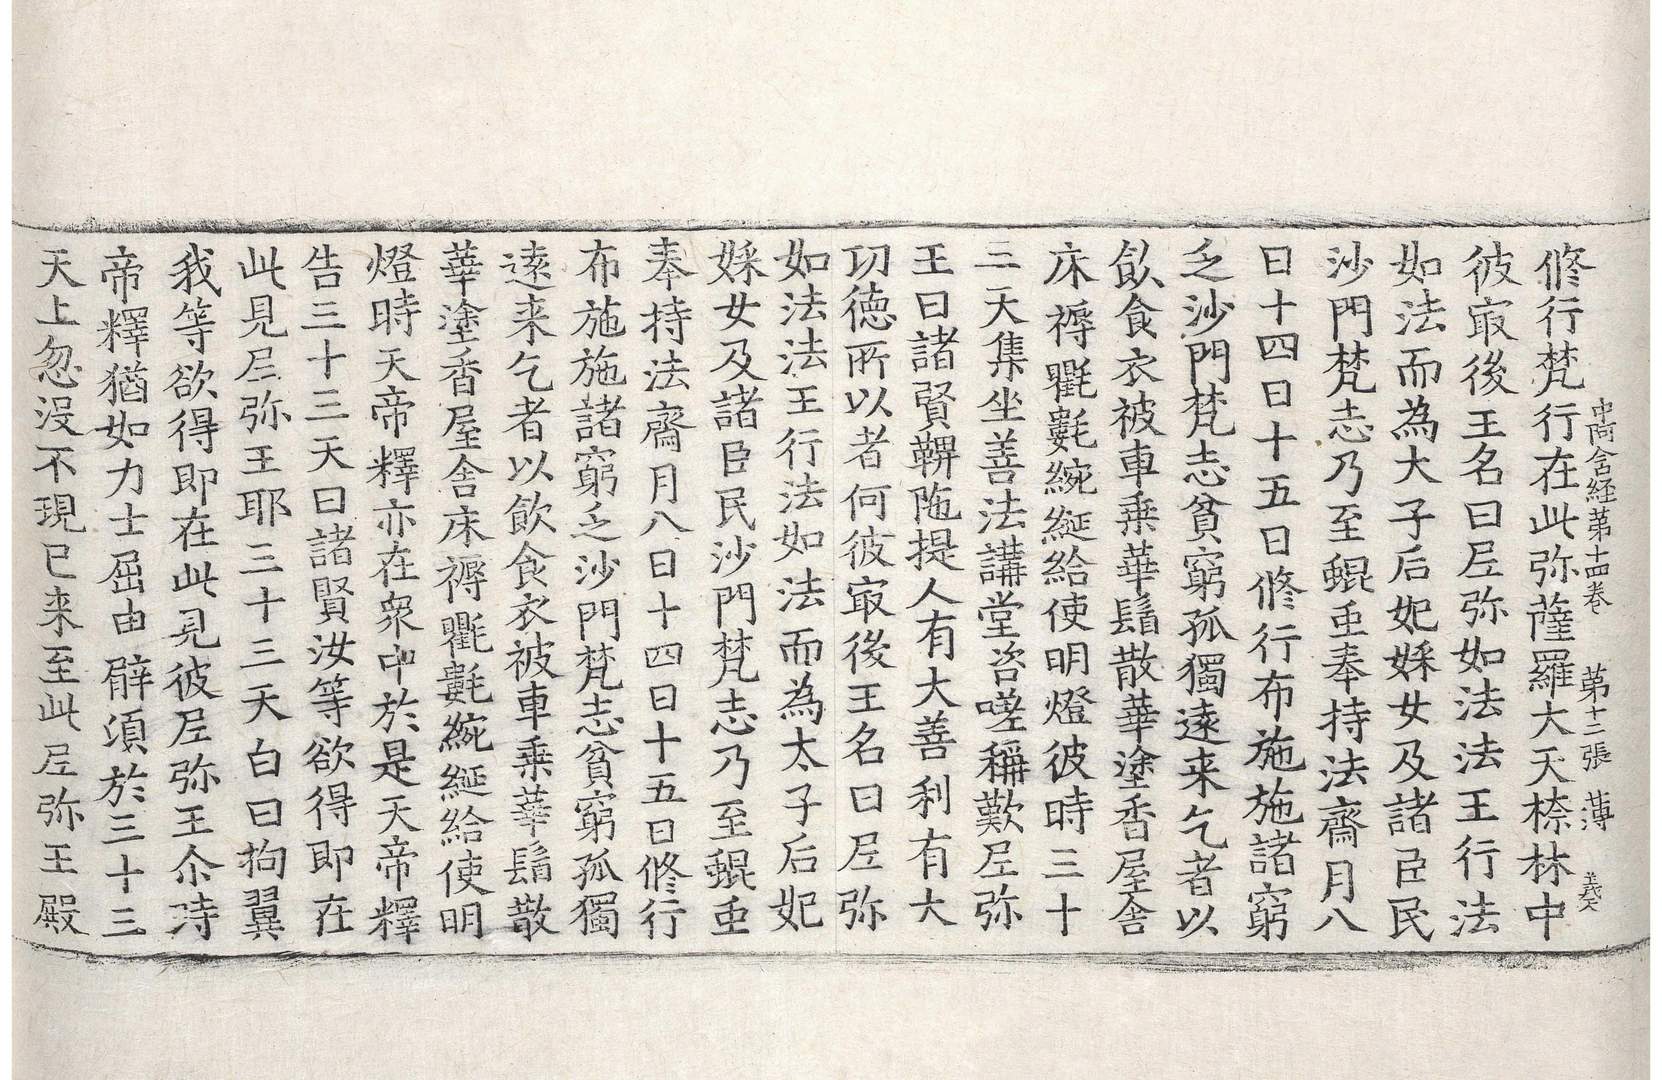 中阿含経苐十四卷　苐十二張　薄
修行梵行在此弥薩羅大天㮈林中
彼㝡後王名曰𡰱弥如法法王行法
如法而為大子后妃婇女及諸臣民
沙門梵志乃至蜫虫奉持法齋月八
日十四日十五日修行布施施諸窮
乏沙門梵志貧窮孤獨遠来乞者以
飲食衣被車乗華鬘散華塗香屋舎
床褥氍氀綩綖給使明燈彼時三十
三天集坐善法講堂咨嗟稱歎𡰱弥
王曰諸賢鞞陁提人有大善利有大
功德所以者何彼㝡後王名曰𡰱弥
如法法王行法如法而為太子后妃
婇女及諸臣民沙門梵志乃至蜫虫
奉持法齋月八日十四日十五日修行
布施施諸窮乏沙門梵志貧窮孤獨
遠来乞者以飲食衣被車乗華鬘散
華塗香屋舎床褥氍氀綩綖給使明
燈時天帝釋亦在衆中於是天帝釋
告三十三天曰諸賢汝等欲得即在
此見𡰱弥王耶三十三天白曰拘翼
我等欲得即在此見彼𡰱弥王尒時
帝釋猶如力士屈由臂須於三十三
天上忽沒不現已来至此𡰱弥王殿